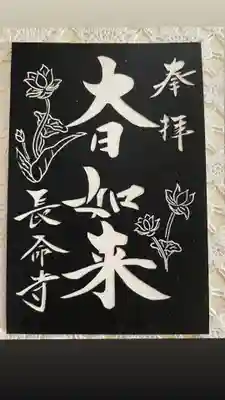 奉拝
大日如来
長命寺